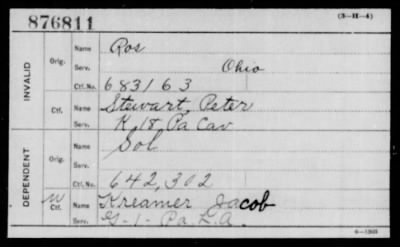 876811
(3-H-4)
INVALID
Orig.
Name Ros
Serv. Ohio
Ctf. No. 683163
Ctf.
Name Stewart, Peter
Serv. K. 18 Pa Cav
DEPENDENT
Orig.
Name Sol
Serv.
Ctf. No. 642,302
W
Ctf.
Name Kreamer Jacob
Serv. G-1-Pa. L.A.